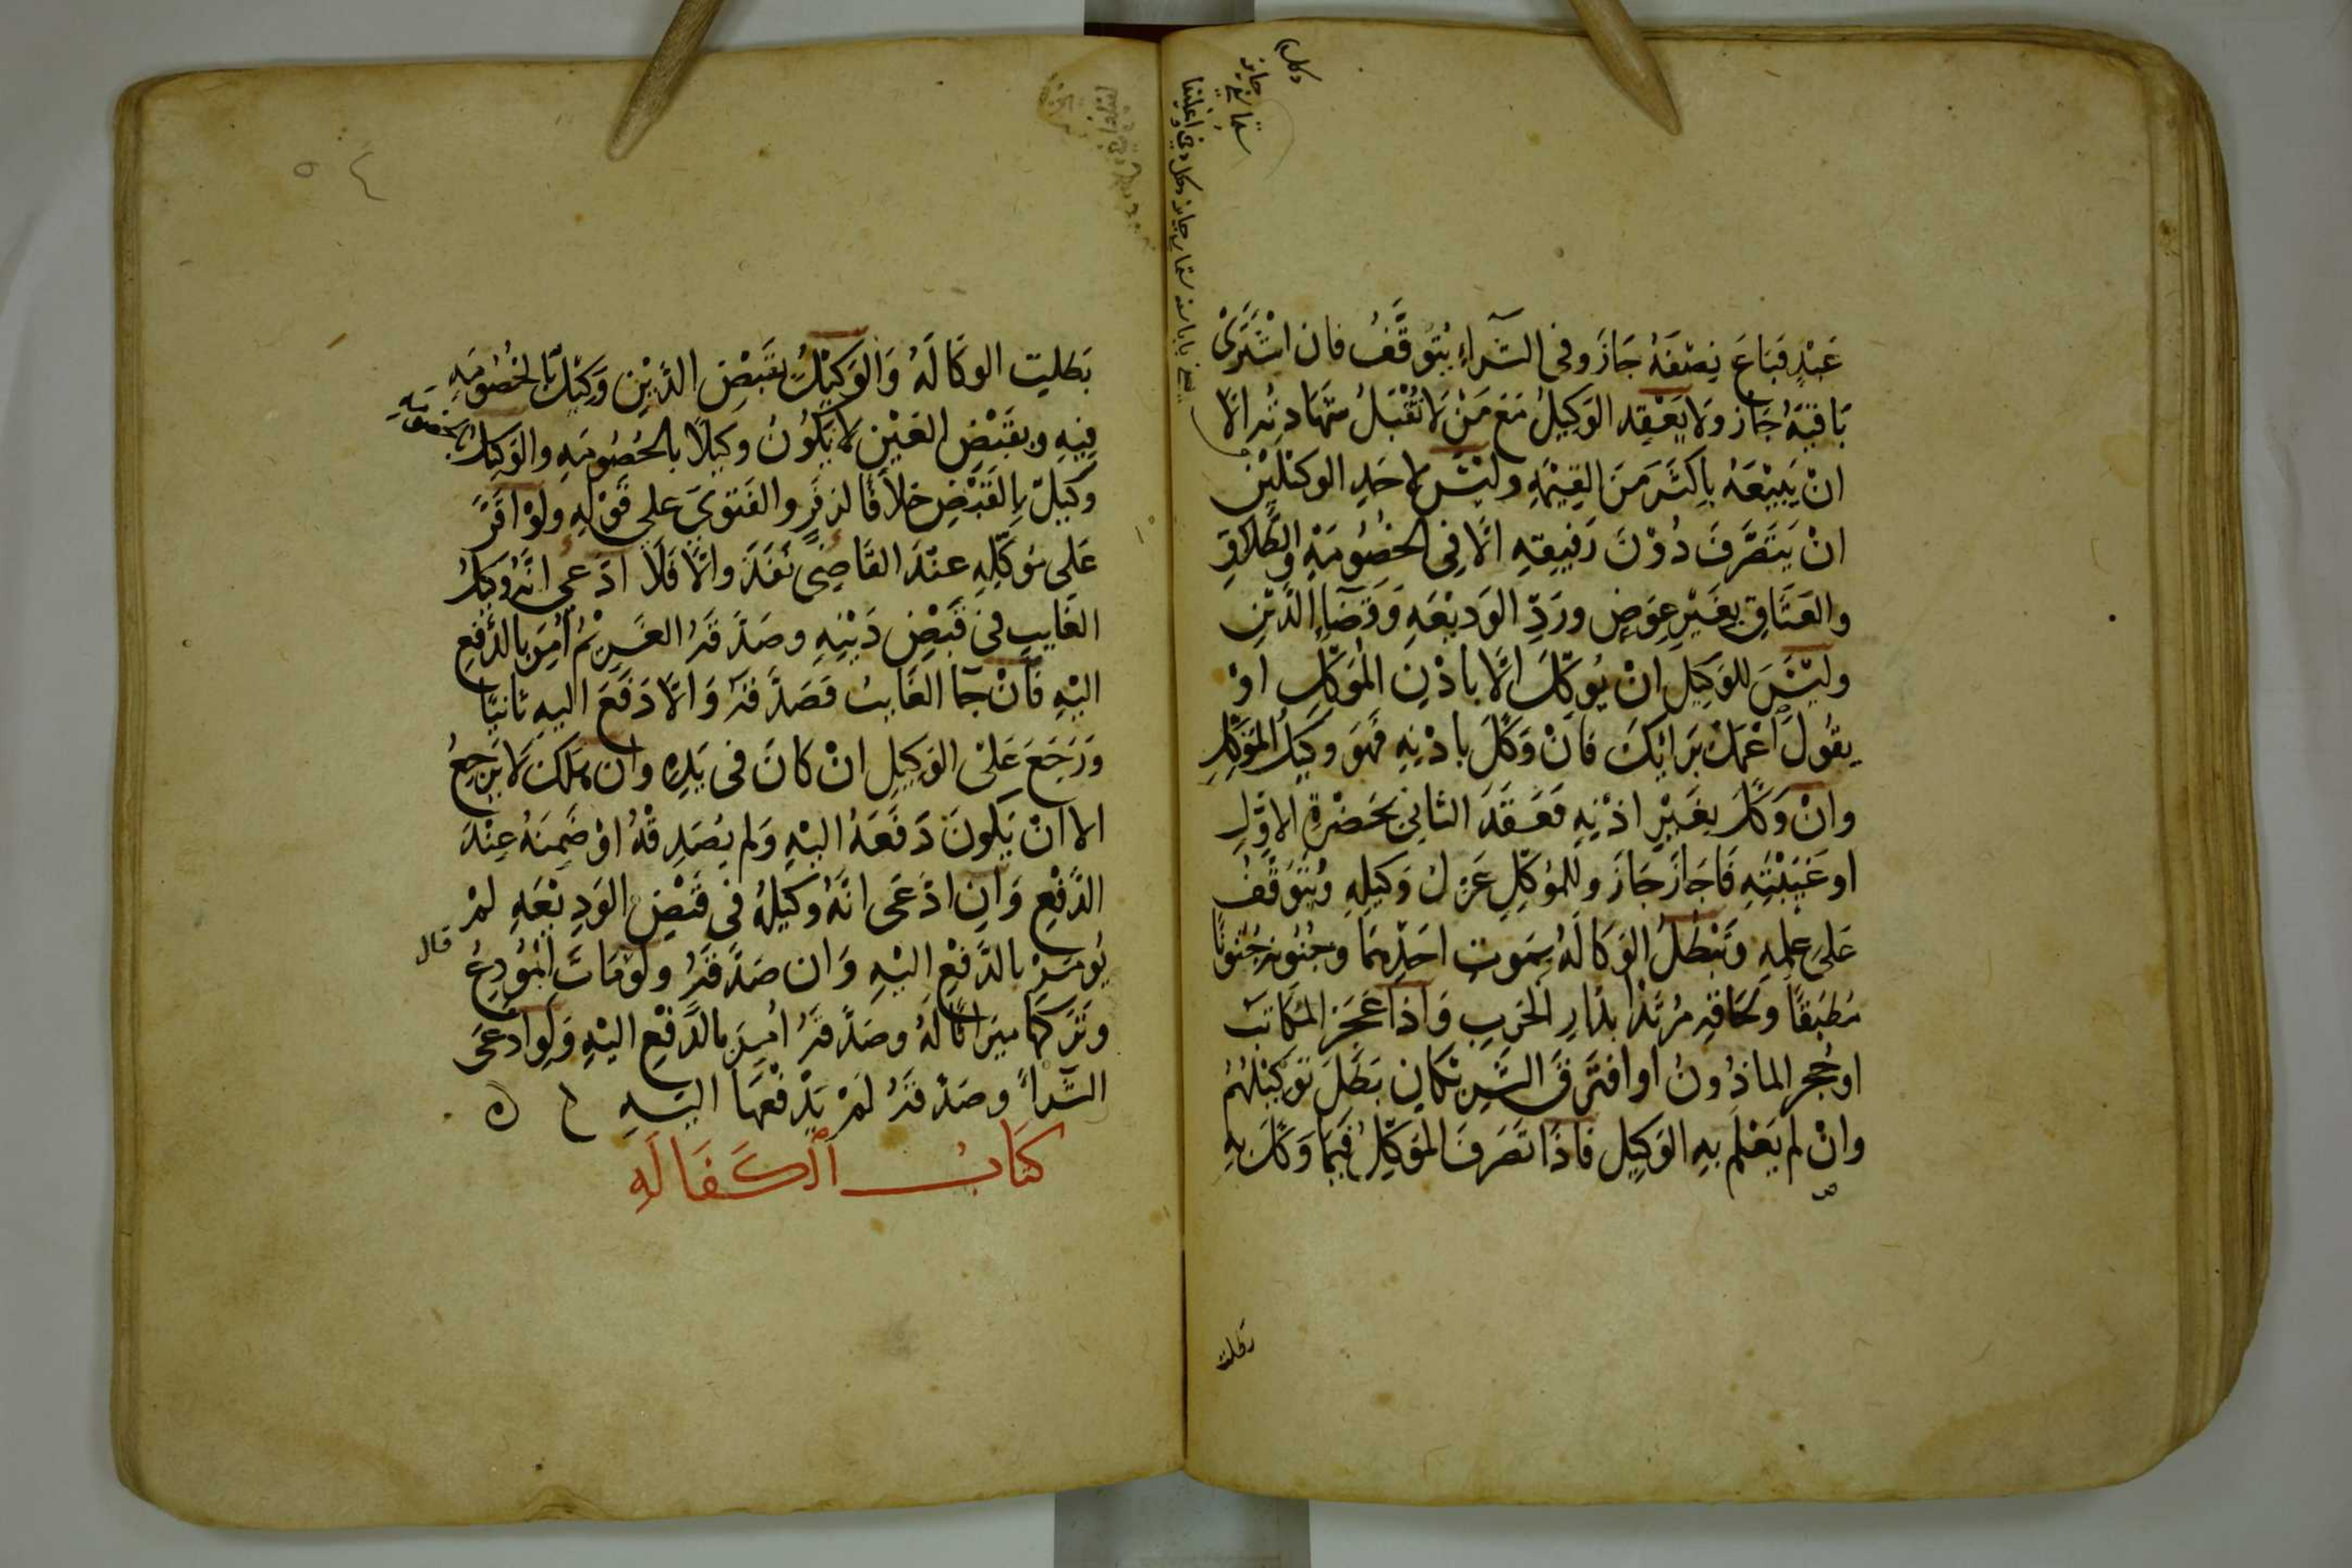 عَبْدٍ فَبَاعَ نِصْفَهُ جَازَ وفى الشّراءِ يُتَوَقَّفُ فان اشْتَرَىٰ
بَاقِيَهُ جَازَ ولَا يَعْقِد الوَكِيلُ مَعَ مَنْ لَا تُقْبَلُ شَهَادتُه الّا
انْ يَبِيْعَهُ بِاَكثَرَ مِنَ القِيْمَةِ ولَيْسَ لاحَدِ الوَكيْلَيْنِ
انْ يَتَصَرَّفَ دُوْنَ رَفِيقِهِ الَّا فِى الخُصُومَةِ والطَّلَاقِ
والعَتَاقِ بِغَيْرِ عِوَضٍ ورَدِّ الوَدِيْعَةِ وَقَضَاءِ الدَّيْنِ
ولَيْسَ للوَكِيلِ انْ يُوكِّلَ الَّا باذْنِ المُوَكِّلِ اوْ
يقُولَ اعْمَلْ بَرَايِكَ فَانْ وَكَّلَ باذْنِهِ فَهُوَ وكِيلُ المُوَكِّلِ
وانْ وَكَّلَ بِغَيْرِ اذْنِهِ فَعَقَدَ الثانِى بحَضْرَةِ الاوَّلِ
او غَيْبَتِهِ فَاجَازَ جَازَ وللمُوَكِّلِ عَزلُ وَكيلِهِ ويُتَوَقَّفُ
عَلى عِلمِهِ وتَبْطُلُ الوَكَالَةُ بِمَوتِ احَدِهِمَا وجُنُونِهِ جُنُونًا
مُطبَقًا ولحَاقِهِ مُرْتَدًّا بدَارِ الحَربِ وَاذَا عَجَزَ المكَاتَبُ
او حُجِرَ الماذُونُ او افتَرَقَ الشَرِيكَانِ بَطَلَ تَوكِيْلُهُمْ
وانْ لم يَعْلَم بهِ الوَكِيلُ فَاذَا تَصَرفَ المُوَكِّلُ فِيْمَا وَكَّلَ بِهِ
بَطَلَت
بَطَليت الوكَالَةُ وَالوَكيْلُ بقَبْضِ الدَّيْنِ وَكيْلٌ بالخُصُومَةِ
فِيْهِ وبقَبْضِ العَيْنِ لا يَكُونُ وكيلًا بالخُصُومَةِ والوَكِيلُ
بالخصومَةِ
وَكيلٌ بِالقَبْضِ خلاَفًا لزفَر والفَتوَى عَلى قَوْلِهِ ولَوْ اقَرَّ
عَلى مُوكِّلِهِ عنْدَ القَاضِى نَفَذَ والَّا فَلَا ادّعى انَّهُ وَكيلُ
الغَايبِ فى قَبْضِ دَيْنِهِ وصَدَّقَهُ الغَرِيْمُ اُمِرَ بالدَّفْعِ
اليْهِ فَانْ جَا الغَايبُ فَصَدَّقَهُ وَالَّا دَفَعَ اليهِ ثانيًا
وَرَجَعَ عَلى الوَكِيلِ انْ كَانَ فى يَدِهِ وان هَلَكَ لَا يَرجِعُ
الا انْ يَكونَ دَفَعَهُ اليْهِ وَلم يُصَدِقْهُ اوْ ضَمِنَهُ عِنْدَ
الدَّفْعِ وَانِ ادَّعَى انَّهُ وكيلهُ فى قَبْضِ الوَدِيْعَةِ لمْ
يُومَرْ بالدَّفْعِ اليْهِ وَان صَدَّقَهُ ولَوْ مَاتَ المُوْدِعُ
قال
وتَركهَا ميَراثًا لَهُ وصَدَّقَهُ اُمِرَ بالدَّفْعِ اليْهِ وَلوِ ادَّعَى
الشّرَاء وصَدّقَهُ لَمْ يَدْفعْهَا اليْهِ
كتَابُ الكَفَالَهِ